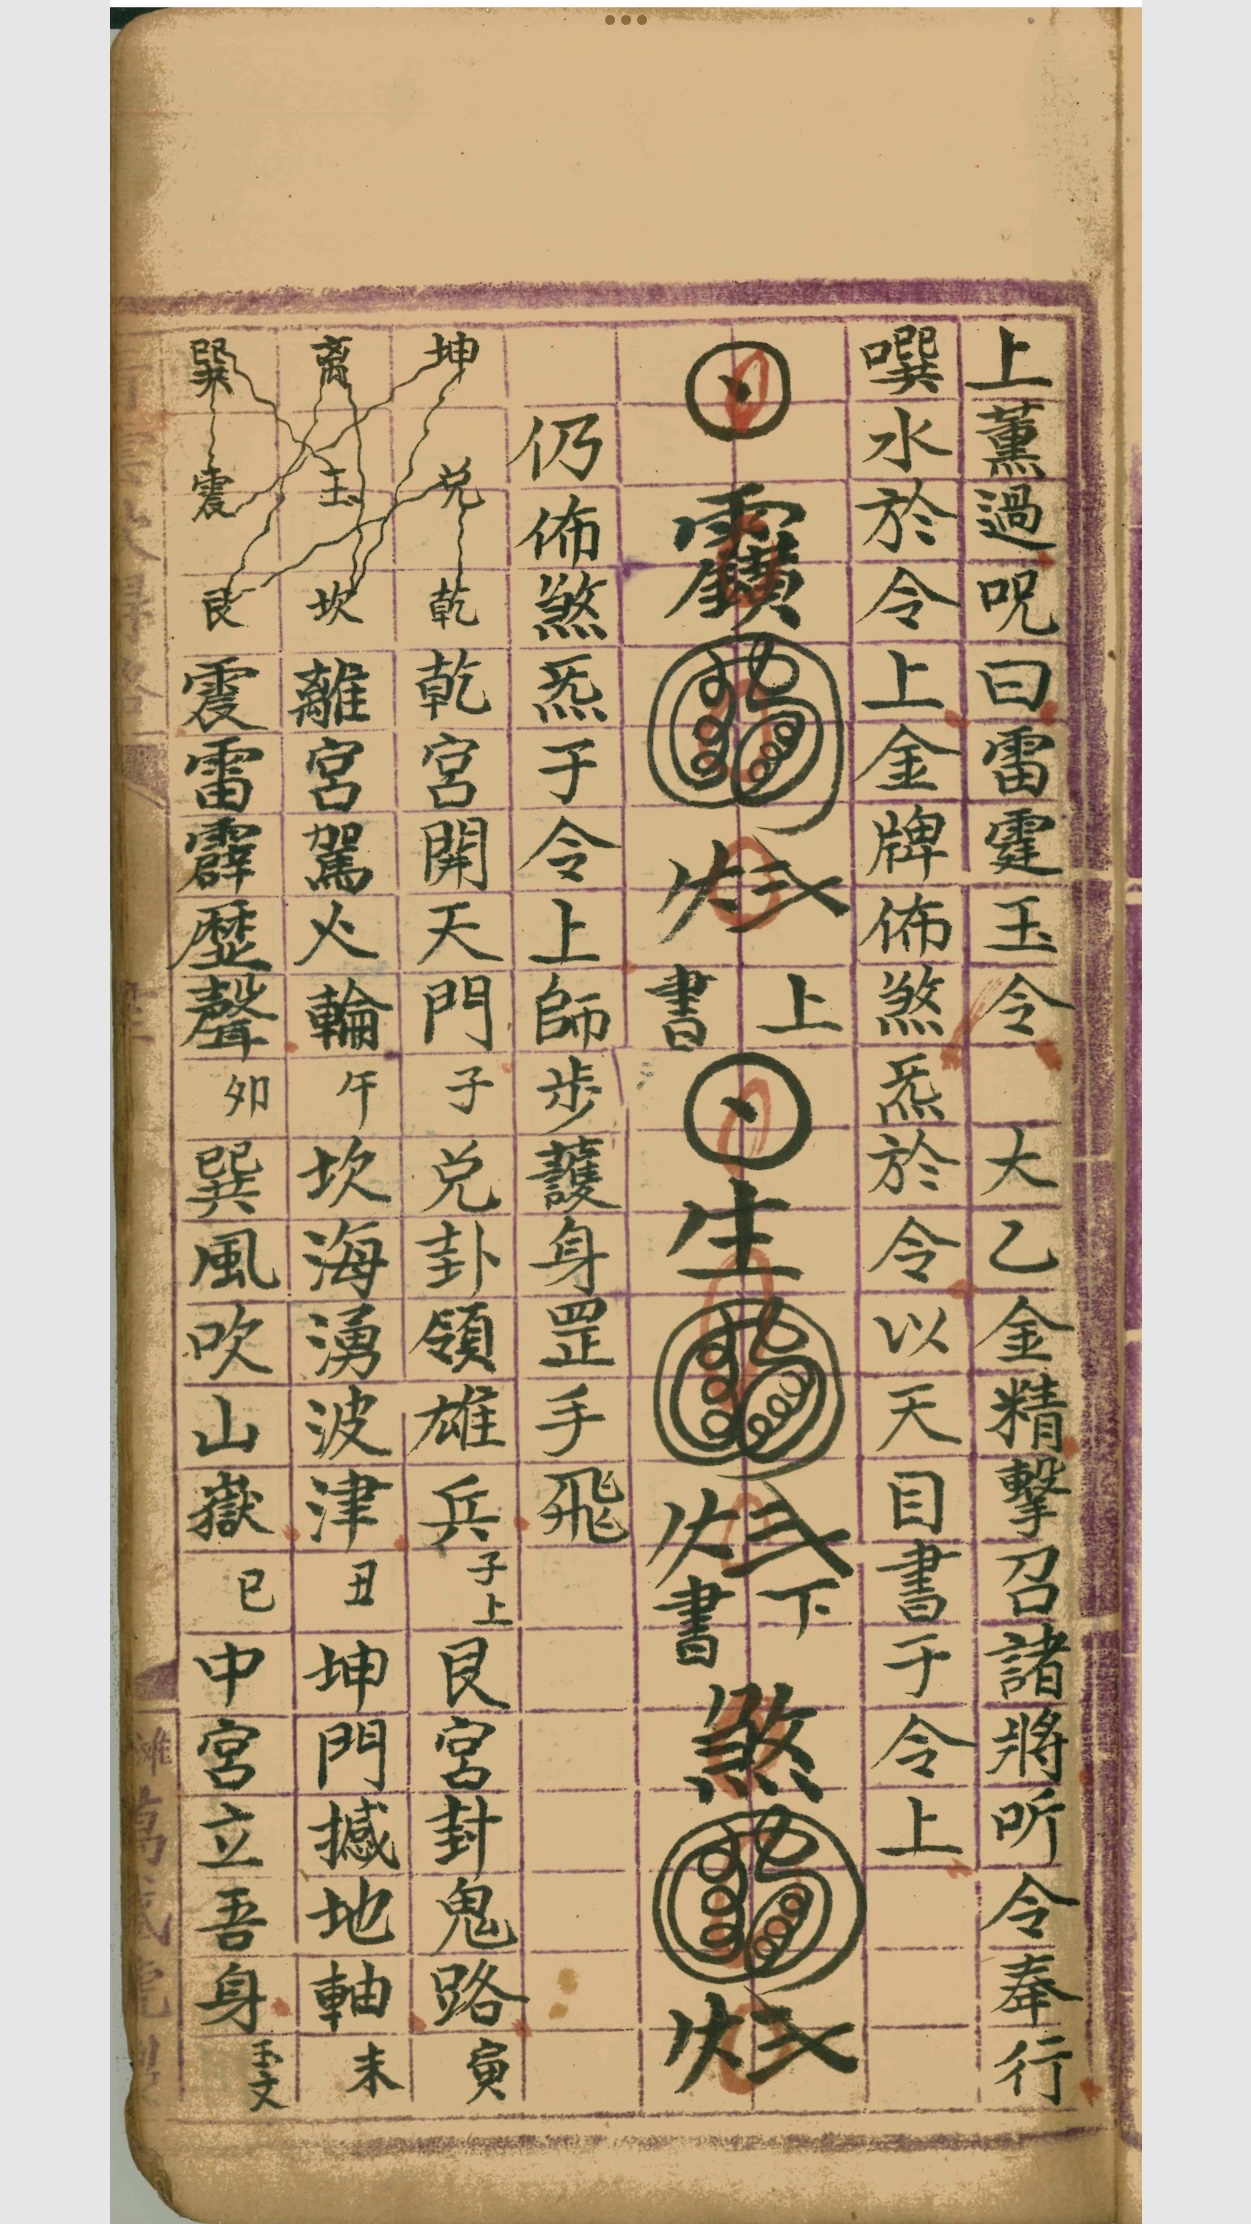 上薰過咒曰雷霆玉令 大乙金精擊召諸將听令奉行
噀水於令上金牌佈煞炁於令以天目書于令上
上書
生
下書
煞
仍佈煞炁于令上師步護身罡手飛
坤 兌 乾 乾宮開天門子兌卦領雄兵子上艮宮封鬼路寅
离 玉 坎 離宮駕火輪午坎海湧波津丑坤門撼地軸未
巽 震 艮 震雷霹歷聲夘巽風吹山嶽巳中宮立吾身玉文